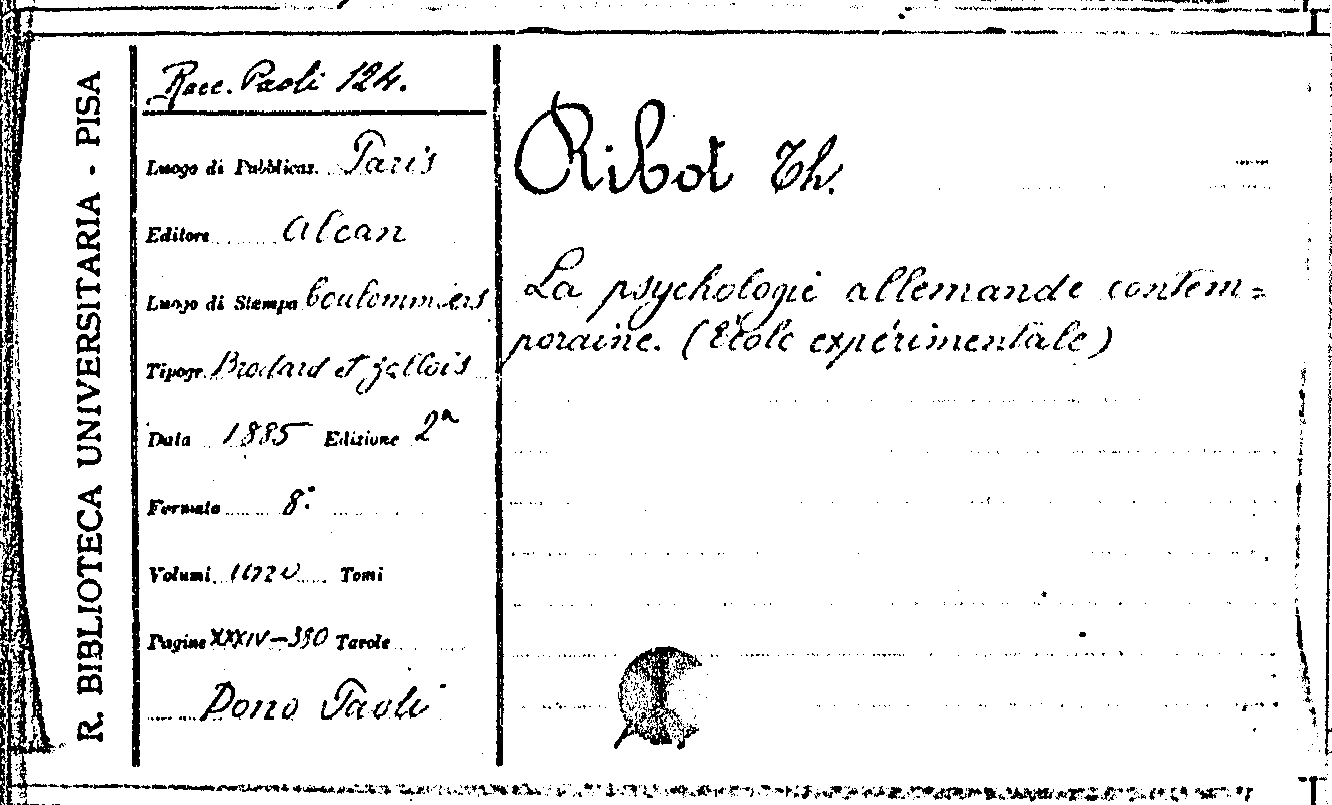 R. BIBLIOTECA UNIVERSITARIA - PISA
Racc. Paoli 124.
Luogo di Pubblicaz. Paris
Editore Alcan
Luogo di Stampa Coulommiers
Tipogr. Brodard et Gallois
Data 1885 Edizione 2ª
Formato 8.°
Volumi uno Tomi
Pagine XXXIV-390 Tavole
Dono Paoli
Ribot Th.
La psychologie allemande contem=
poraine. (École expérimentale)